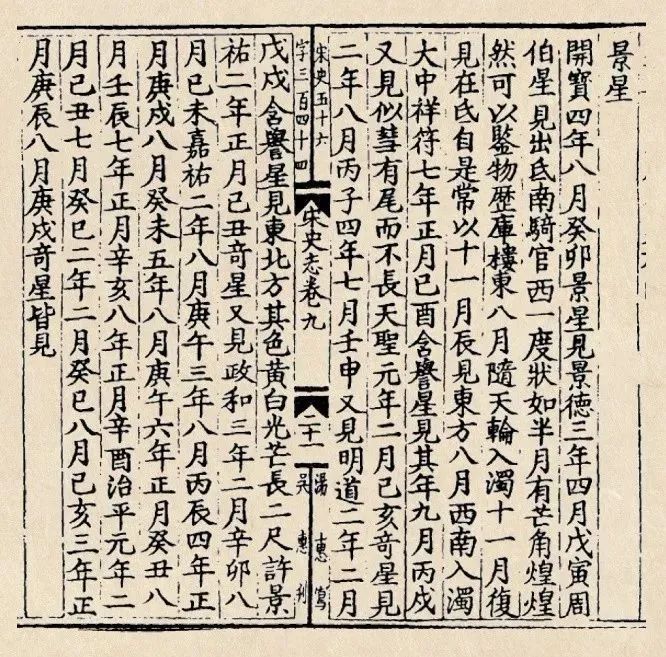 景星
開寶四年八月癸卯景星見景德三年四月戊寅周
伯星見出氐南騎官西一度狀如半月有芒角煌煌
然可以鑒物歴庫樓東八月隨天輪入濁十一月復
見在氐自是常以十一月辰見東方八月西南入濁
大中祥符七年正月己酉含譽星見其年九月丙戌
又見似彗有尾而不長天聖元年二月己亥奇星見
二年八月丙子四年七月壬申又見明道二年二月
宋史五十六
字三百四十四
宋史志卷九
二十一
湯惠寫
吴惠刋
戊戌含譽星見東北方其色黄白光芒長二尺許景
祐二年正月己丑奇星又見政和三年二月辛卯八
月己未嘉祐二年八月庚午三年八月丙辰四年正
月庚戌八月癸未五年八月庚午六年正月癸丑八
月壬辰七年正月辛亥八年正月辛酉治平元年二
月己丑七月癸巳二年二月癸巳八月己亥三年正
月庚辰八月庚戌奇星皆見